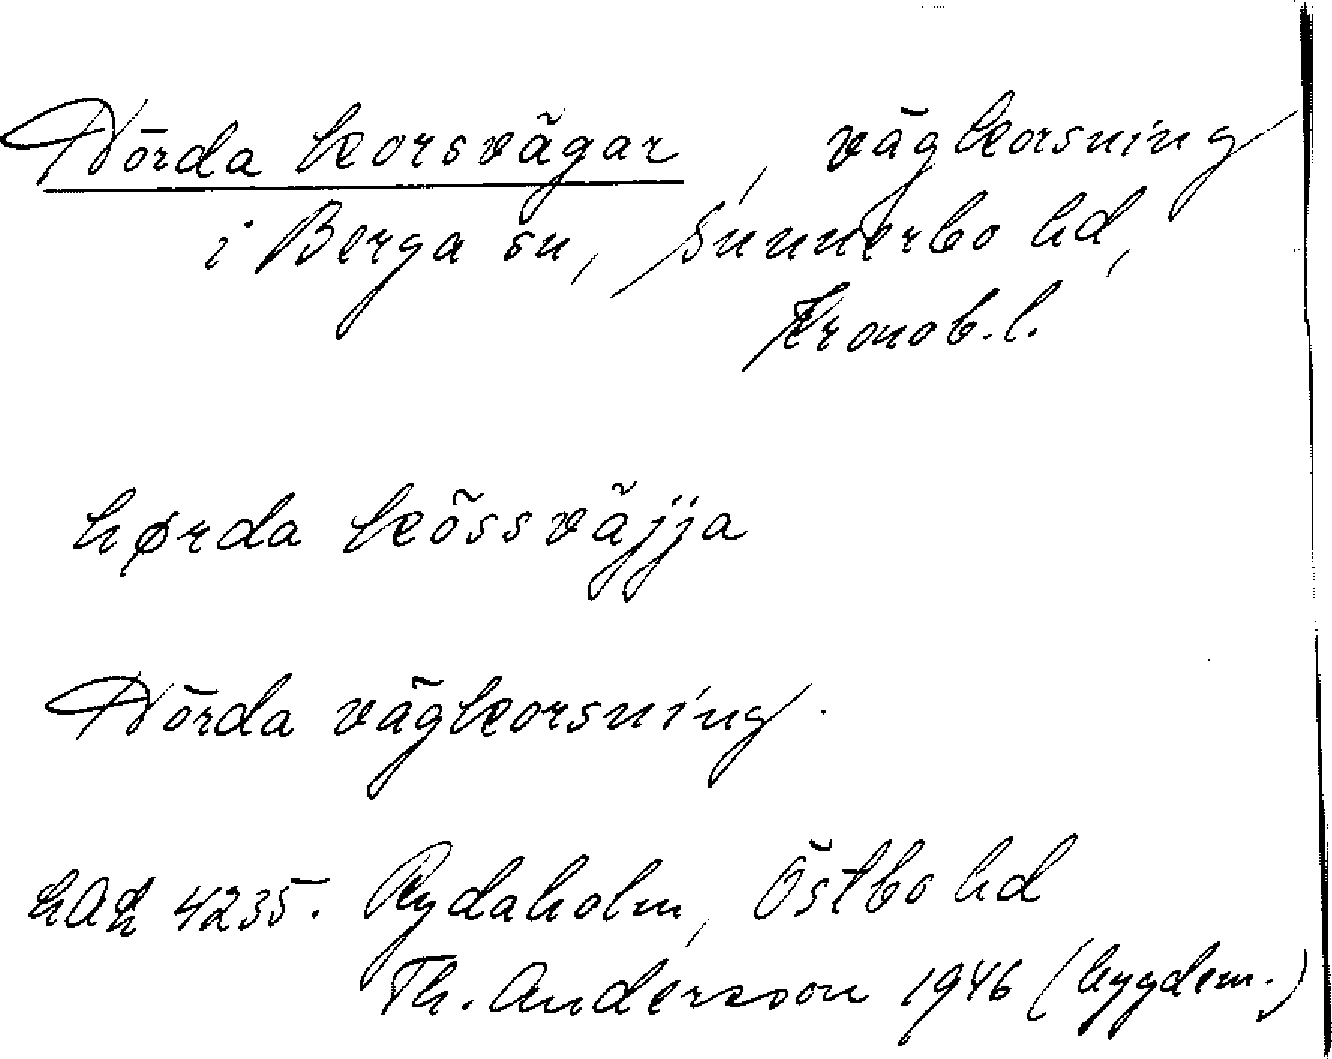 Hörda korsvägar, vägkorsning
i Berga sn, Sunnerbo hd,
Kronob. l.
hørda kössväjja
Hörda vägkorsning.
4235. Rydaholm, Östbo hd
Th. Andersson 1946 (bygdem.)